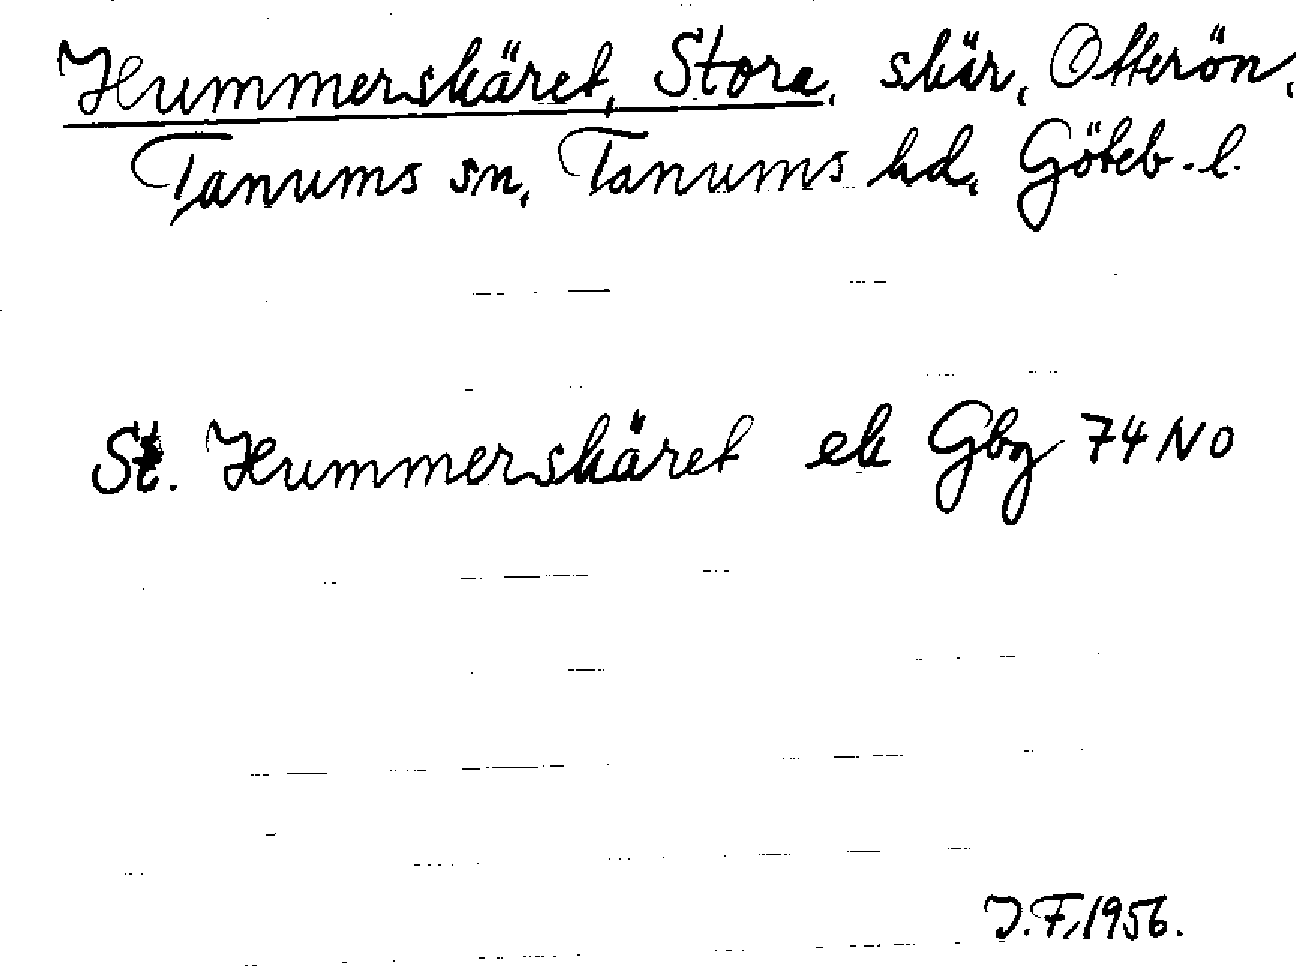 Hummerskäret, Stora, skär, Otterön,
Tanums sn, Tanums hd, Göteb.l.
St. Hummerskäret ek Gbg 74 NO
J.F. 1956.